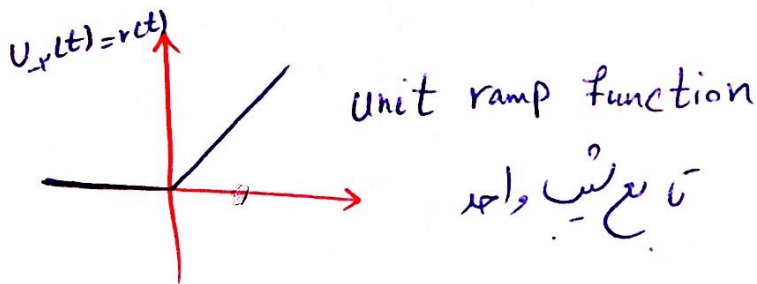 U₋₂(t)=r(t)
unit ramp function
تابع شیب واحد